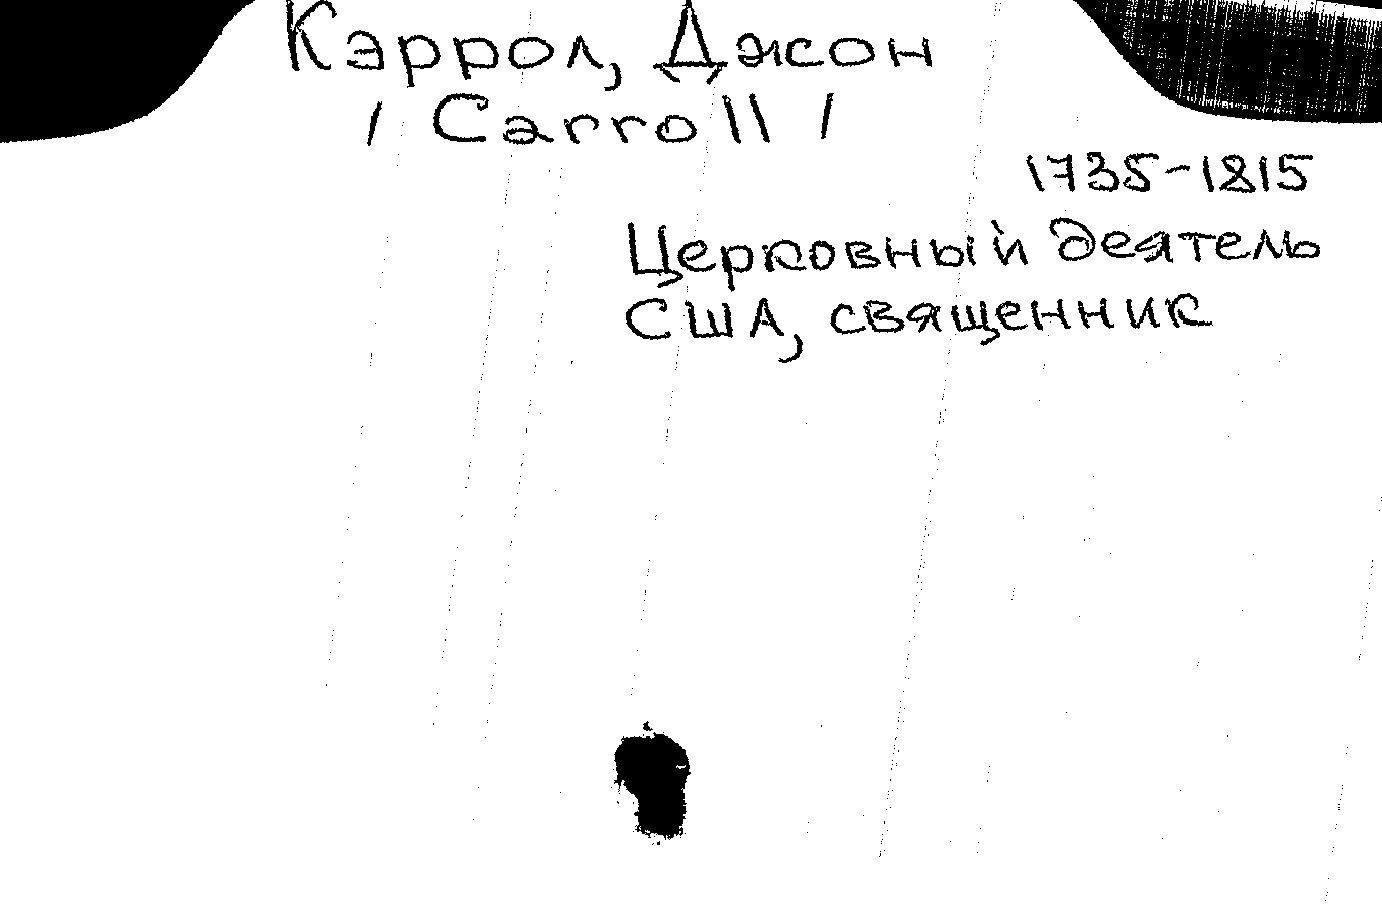 Кэррол, Джон
/ Carroll /
1735-1815
Церковный деятель
США, священник